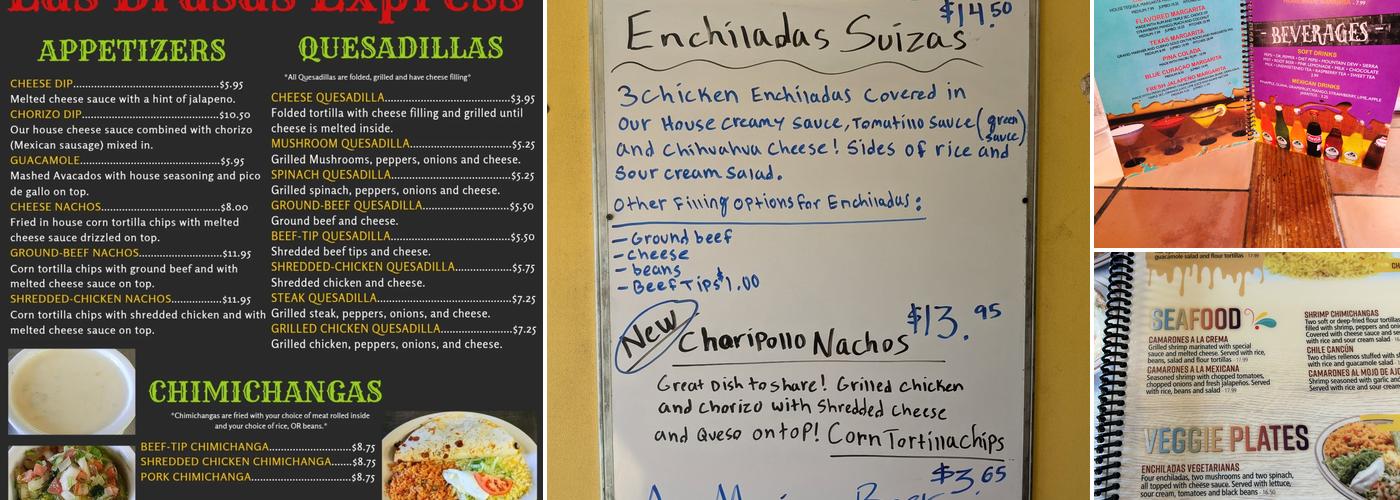 Las Brasas Express
APPETIZERS
CHEESE DIP $5.95
Melted cheese sauce with a hint of jalapeno.
CHORIZO DIP $10.50
Our house cheese sauce combined with chorizo
(Mexican sausage) mixed in.
GUACAMOLE $5.95
Mashed Avacados with house seasoning and pico
de gallo on top.
CHEESE NACHOS $8.00
Fried in house corn tortilla chips with melted
cheese sauce drizzled on top.
GROUND-BEEF NACHOS $11.95
Corn tortilla chips with ground beef and with
melted cheese sauce on top.
SHREDDED-CHICKEN NACHOS $11.95
Corn tortilla chips with shredded chicken and with
melted cheese sauce on top.
QUESADILLAS
*All Quesadillas are folded, grilled and have cheese filling*
CHEESE QUESADILLA $3.95
Folded tortilla with cheese filling and grilled until
cheese is melted inside.
MUSHROOM QUESADILLA $5.25
Grilled Mushrooms, peppers, onions and cheese.
SPINACH QUESADILLA $5.25
Grilled spinach, peppers, onions and cheese.
GROUND-BEEF QUESADILLA $5.50
Ground beef and cheese.
BEEF-TIP QUESADILLA $5.50
Shredded beef tips and cheese.
SHREDDED-CHICKEN QUESADILLA $5.75
Shredded chicken and cheese.
STEAK QUESADILLA $7.25
Grilled steak, peppers, onions, and cheese.
GRILLED CHICKEN QUESADILLA $7.25
Grilled chicken, peppers, onions, and cheese.
CHIMICHANGAS
*Chimichangas are fried with your choice of meat rolled inside
and your choice of rice, OR beans.*
BEEF-TIP CHIMICHANGA $8.75
SHREDDED CHICKEN CHIMICHANGA $8.75
PORK CHIMICHANGA $8.75
$14.50
Enchiladas Suizas
3 Chicken Enchiladas Covered in
Our House Creamy Sauce, Tomatillo Sauce (green sauce)
and Chihuahua Cheese! Sides of rice and
Sour cream Salad.
Other Filling Options For Enchiladas:
- Ground beef
- cheese
- beans
- Beef Tips $1.00
New Choripollo Nachos $13.95
Great Dish to share! Grilled chicken
and chorizo with Shredded Cheese
and Queso on top! Corn Tortilla chips
$3.65
FLAVORED MARGARITA
TEXAS MARGARITA
PINA COLADA
BLUE CURAÇAO MARGARITA
FRESH JALAPEÑO MARGARITA
BEVERAGES
SOFT DRINKS
MEXICAN DRINKS
guacamole salad and flour tortillas
SEAFOOD
CAMARONES A LA CREMA
Grilled shrimp marinated with special
sauce and melted cheese. Served with rice,
beans, salad and flour tortillas 17.99
CAMARONES A LA MEXICANA
Seasoned shrimp with chopped tomatoes,
chopped onions and fresh jalapeños. Served
with rice, beans and salad
SHRIMP CHIMICHANGAS
Two soft or deep-fried flour tortillas
filled with shrimp, peppers and
Covered with cheese sauce and
with rice and sour cream salad
CHILE CANCÚN
Two chiles rellenos stuffed with
with rice and flour tortillas
CAMARONES AL MOJO DE AJO
Shrimp seasoned with garlic and
with rice and sour cream
VEGGIE PLATES
ENCHILADAS VEGETARIANAS
Four enchiladas, two mushrooms and two spinach,
all topped with cheese sauce. Served with lettuce,
sour cream, tomatoes and black beans 16.50